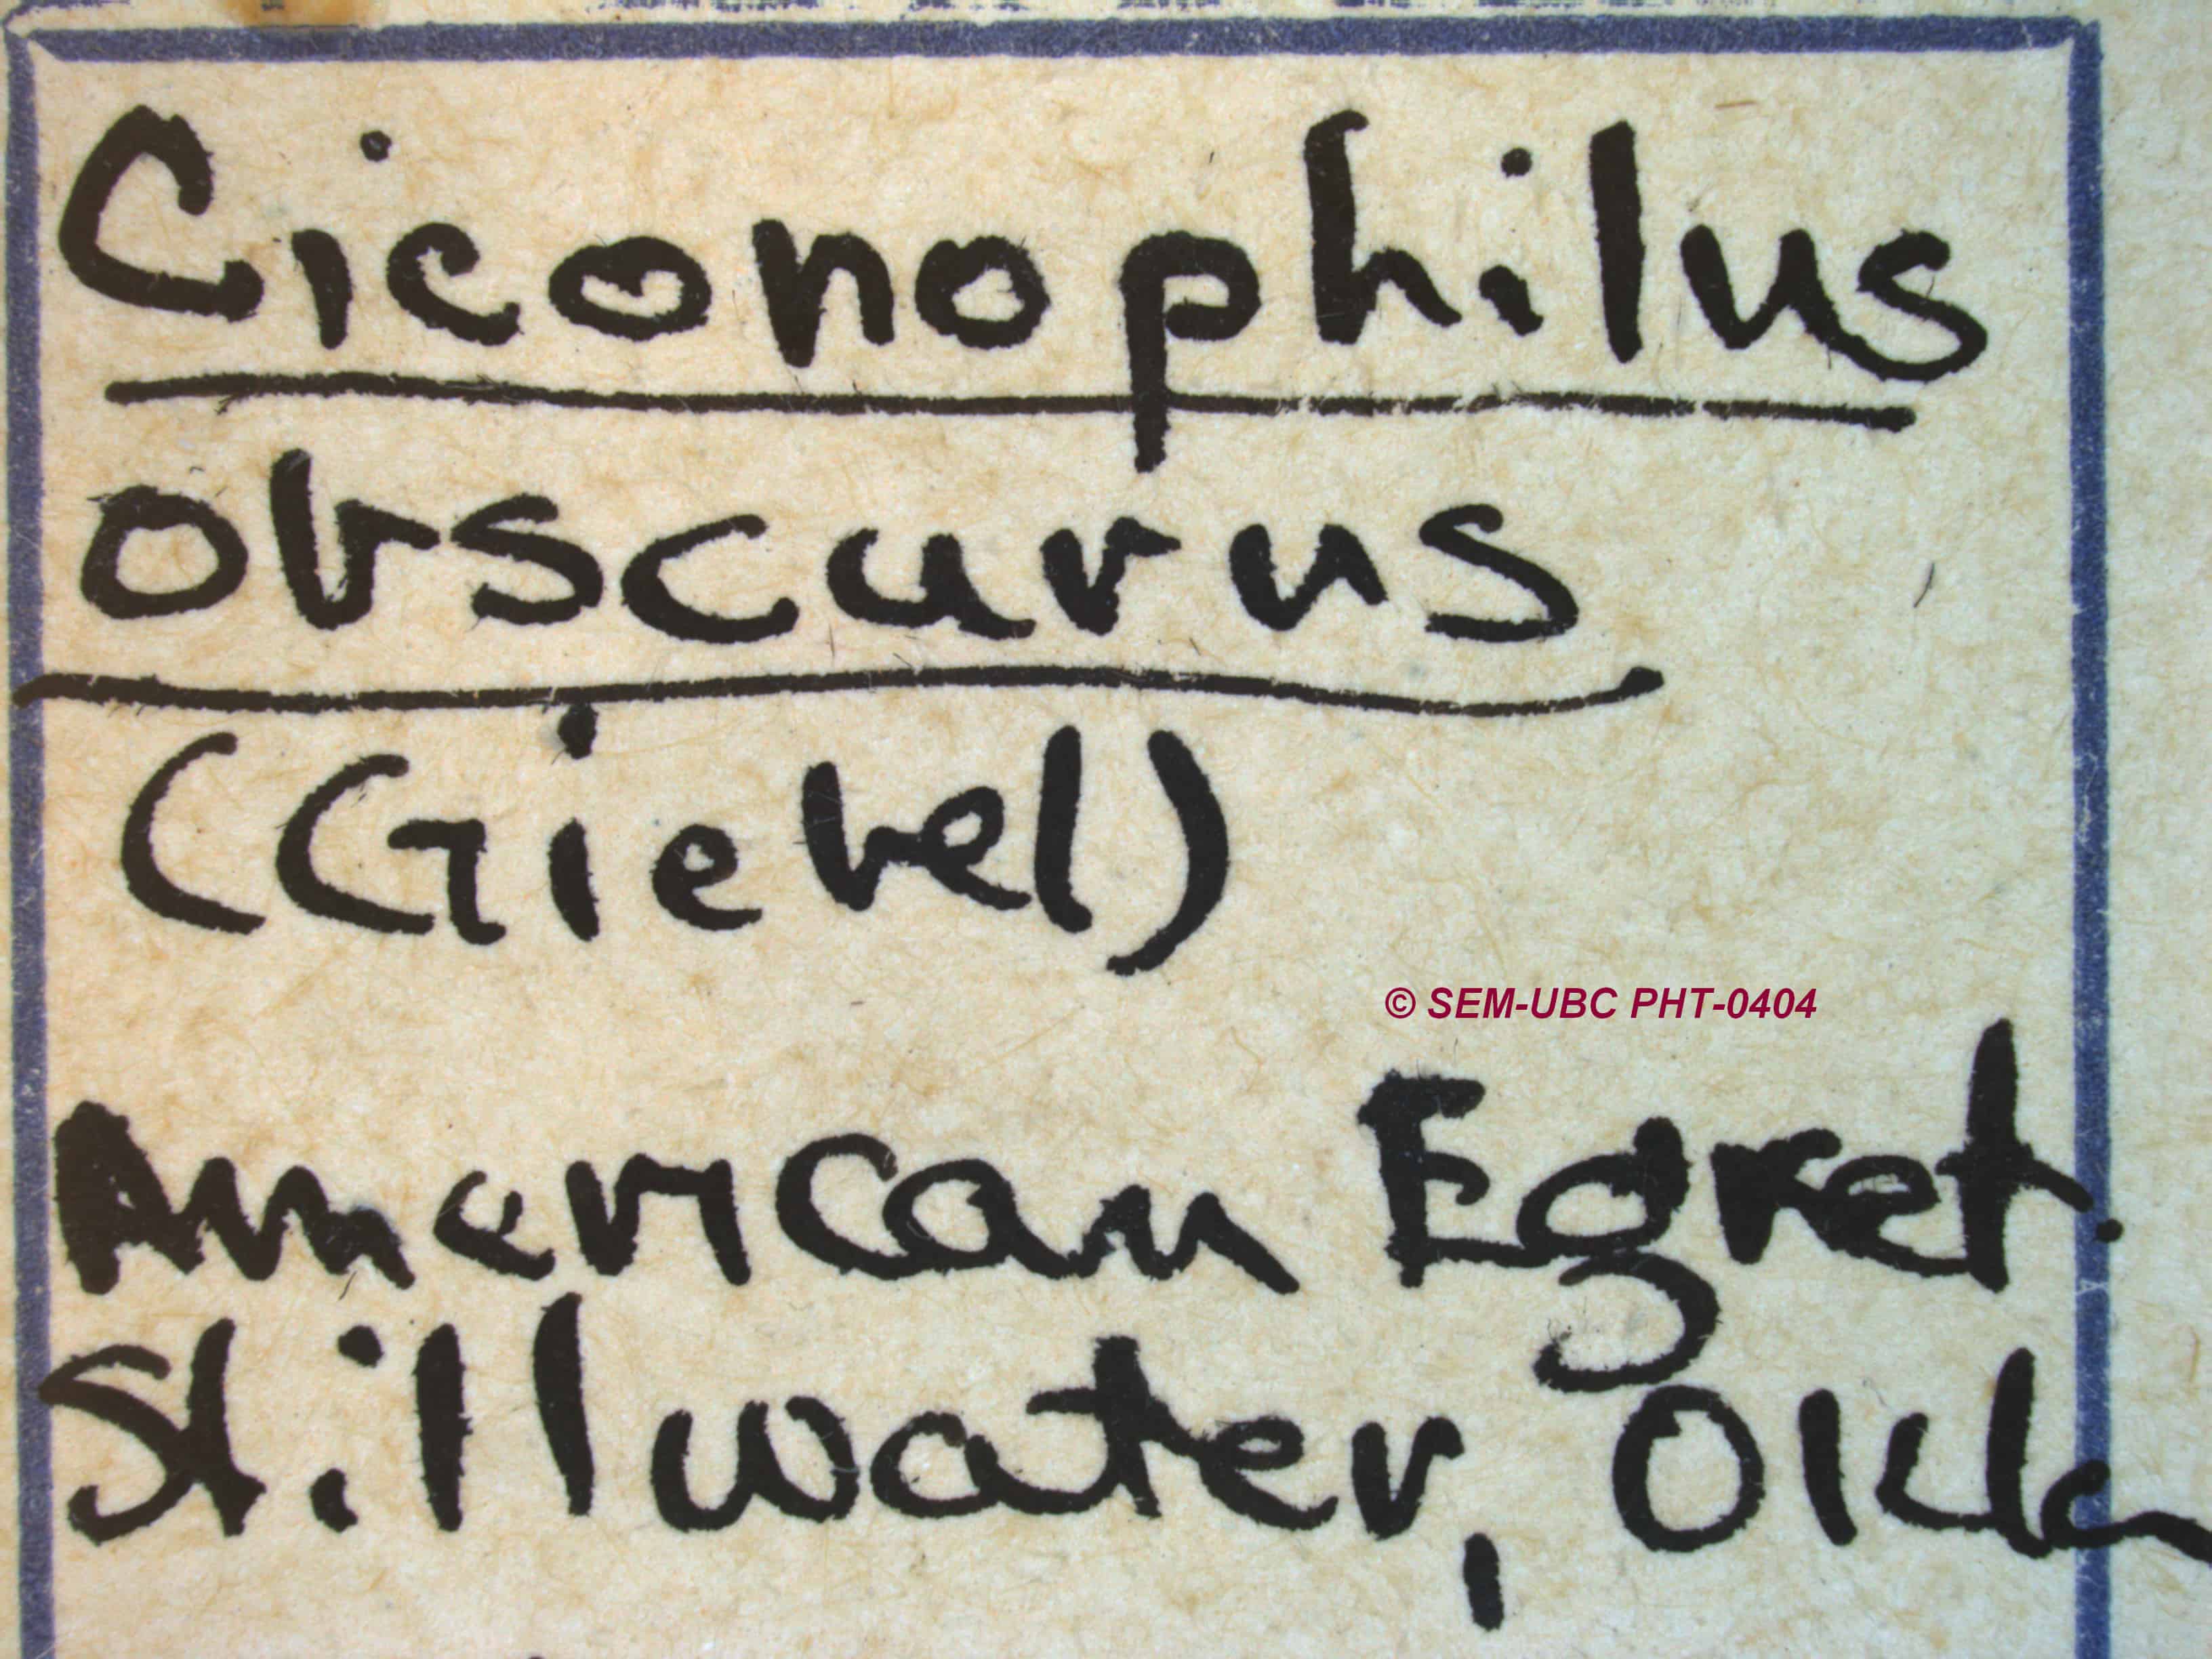 Ciconophilus
obscurus
(Giebel)
© SEM-UBC PHT-0404
American Egret.
Stillwater, Okla